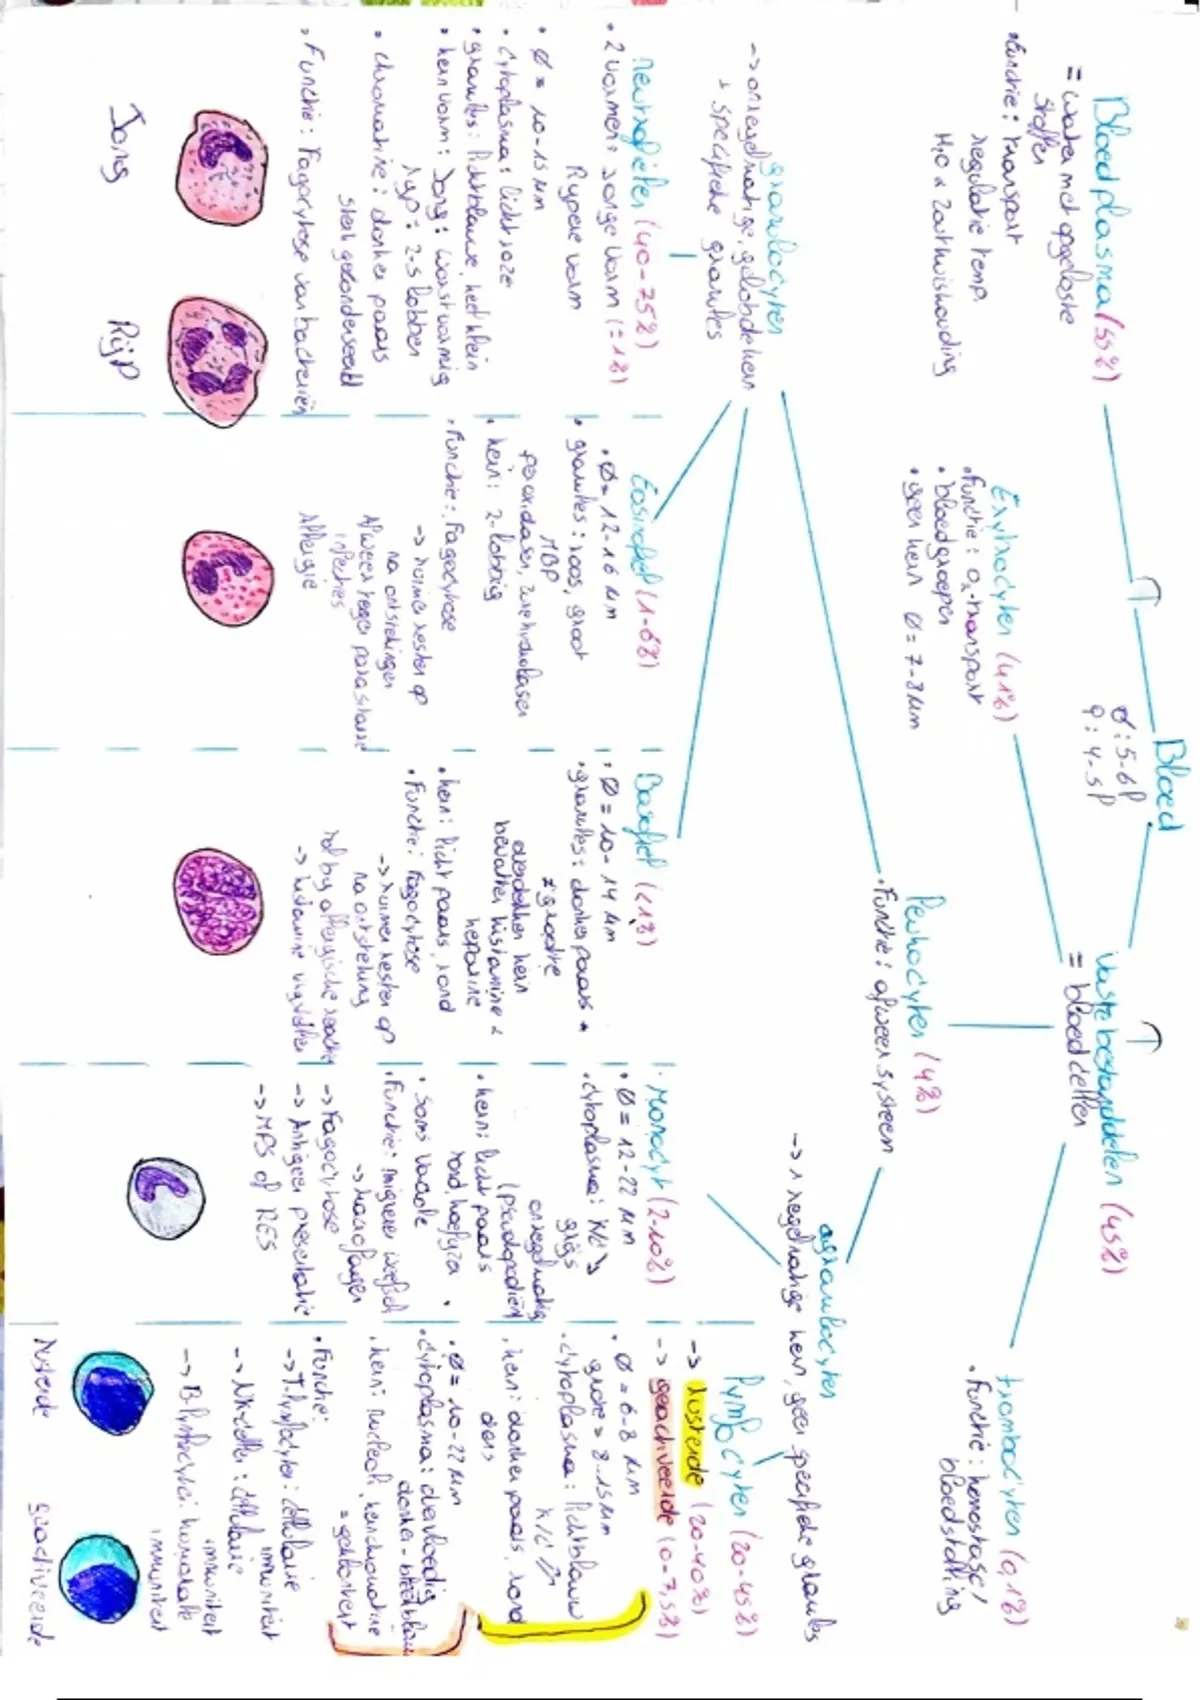 Bloed
♂: 5-6 l
♀: 4-5 l
Bloedplasma (55%)
= water met opgeloste
stoffen
• Functie: transport
regulatie temp.
H2O & zouthuishouding
Vaste bestanddelen (45%)
= bloedcellen
Erythrocyten (41%)
• Functie: O2-transport
• bloedgroepen
• geen kern Ø = 7-8 µm
Leukocyten (4%)
• Functie: afweersysteem
trombocyten (0,1%)
• Functie: hemostase/
bloedstolling
granulocyten
-> onregelmatige, gelobde kern
+ specifieke granules
agranulocyten
-> 1 regelmatige kern, geen specifieke granules
neutrofielen (40-75%)
• 2 vormen: Jonge vorm (± 1%)
Rijpere vorm
• Ø = 10-15 µm
• cytoplasma: licht roze
• granules: lichtblauw, heel klein
• kernvorm: Jong: worstvormig
rijp: 2-5 lobben
• chromatine: donker paars
sterk gecondenseerd
• Functie: Fagocytose van bacteriën
Jong
Rijp
Eosinofiel (1-6%)
• Ø = 12-16 µm
• granules: roos, groot
MBP
peroxidasen, zure hydrolasen
• kern: 2-lobbig
• Functie: Fagocytose
-> ruimen resten op
na ontstekingen
Afweer tegen parasitaire
infecties
Allergie
Basofiel (<1%)
• Ø = 10-14 µm
• granules: donker paars +
≠ grootte
overdekken kern
bevatten histamine &
heparine
• kern: licht paars, rond
• Functie: Fagocytose
-> ruimen resten op
na ontsteking
rol bij allergische reactie
-> histamine vrijstellen
• Monocyt (2-10%)
• Ø = 12-22 µm
• cytoplasma: K/C ↘
grijs
onregelmatig
(pseudopodiën)
• kern: licht paars
rond, hoefijzer
• soms vacuole
• Functie: migreren weefsel
-> macrofagen
-> Fagocytose
-> Antigeen presentatie
-> MPS of RES
Lymfocyten (20-45%)
-> rustende (20-40%)
-> geactiveerde (0-7,5%)
• Ø = 6-8 µm
grote = 8-15 µm
• cytoplasma: lichtblauw
K/C ↗
• kern: donker paars, rond
dens
• Ø = 10-22 µm
• cytoplasma: overvloedig
donker-bleekblauw
• kern: nucleoli, kernchromatine
= gekleurd
• Functie:
-> T-lymfocyten: cellulaire
immuniteit
-> NK-cellen: cellulaire
immuniteit
-> B-lymfocyten: humorale
immuniteit
Rustende
geactiveerde